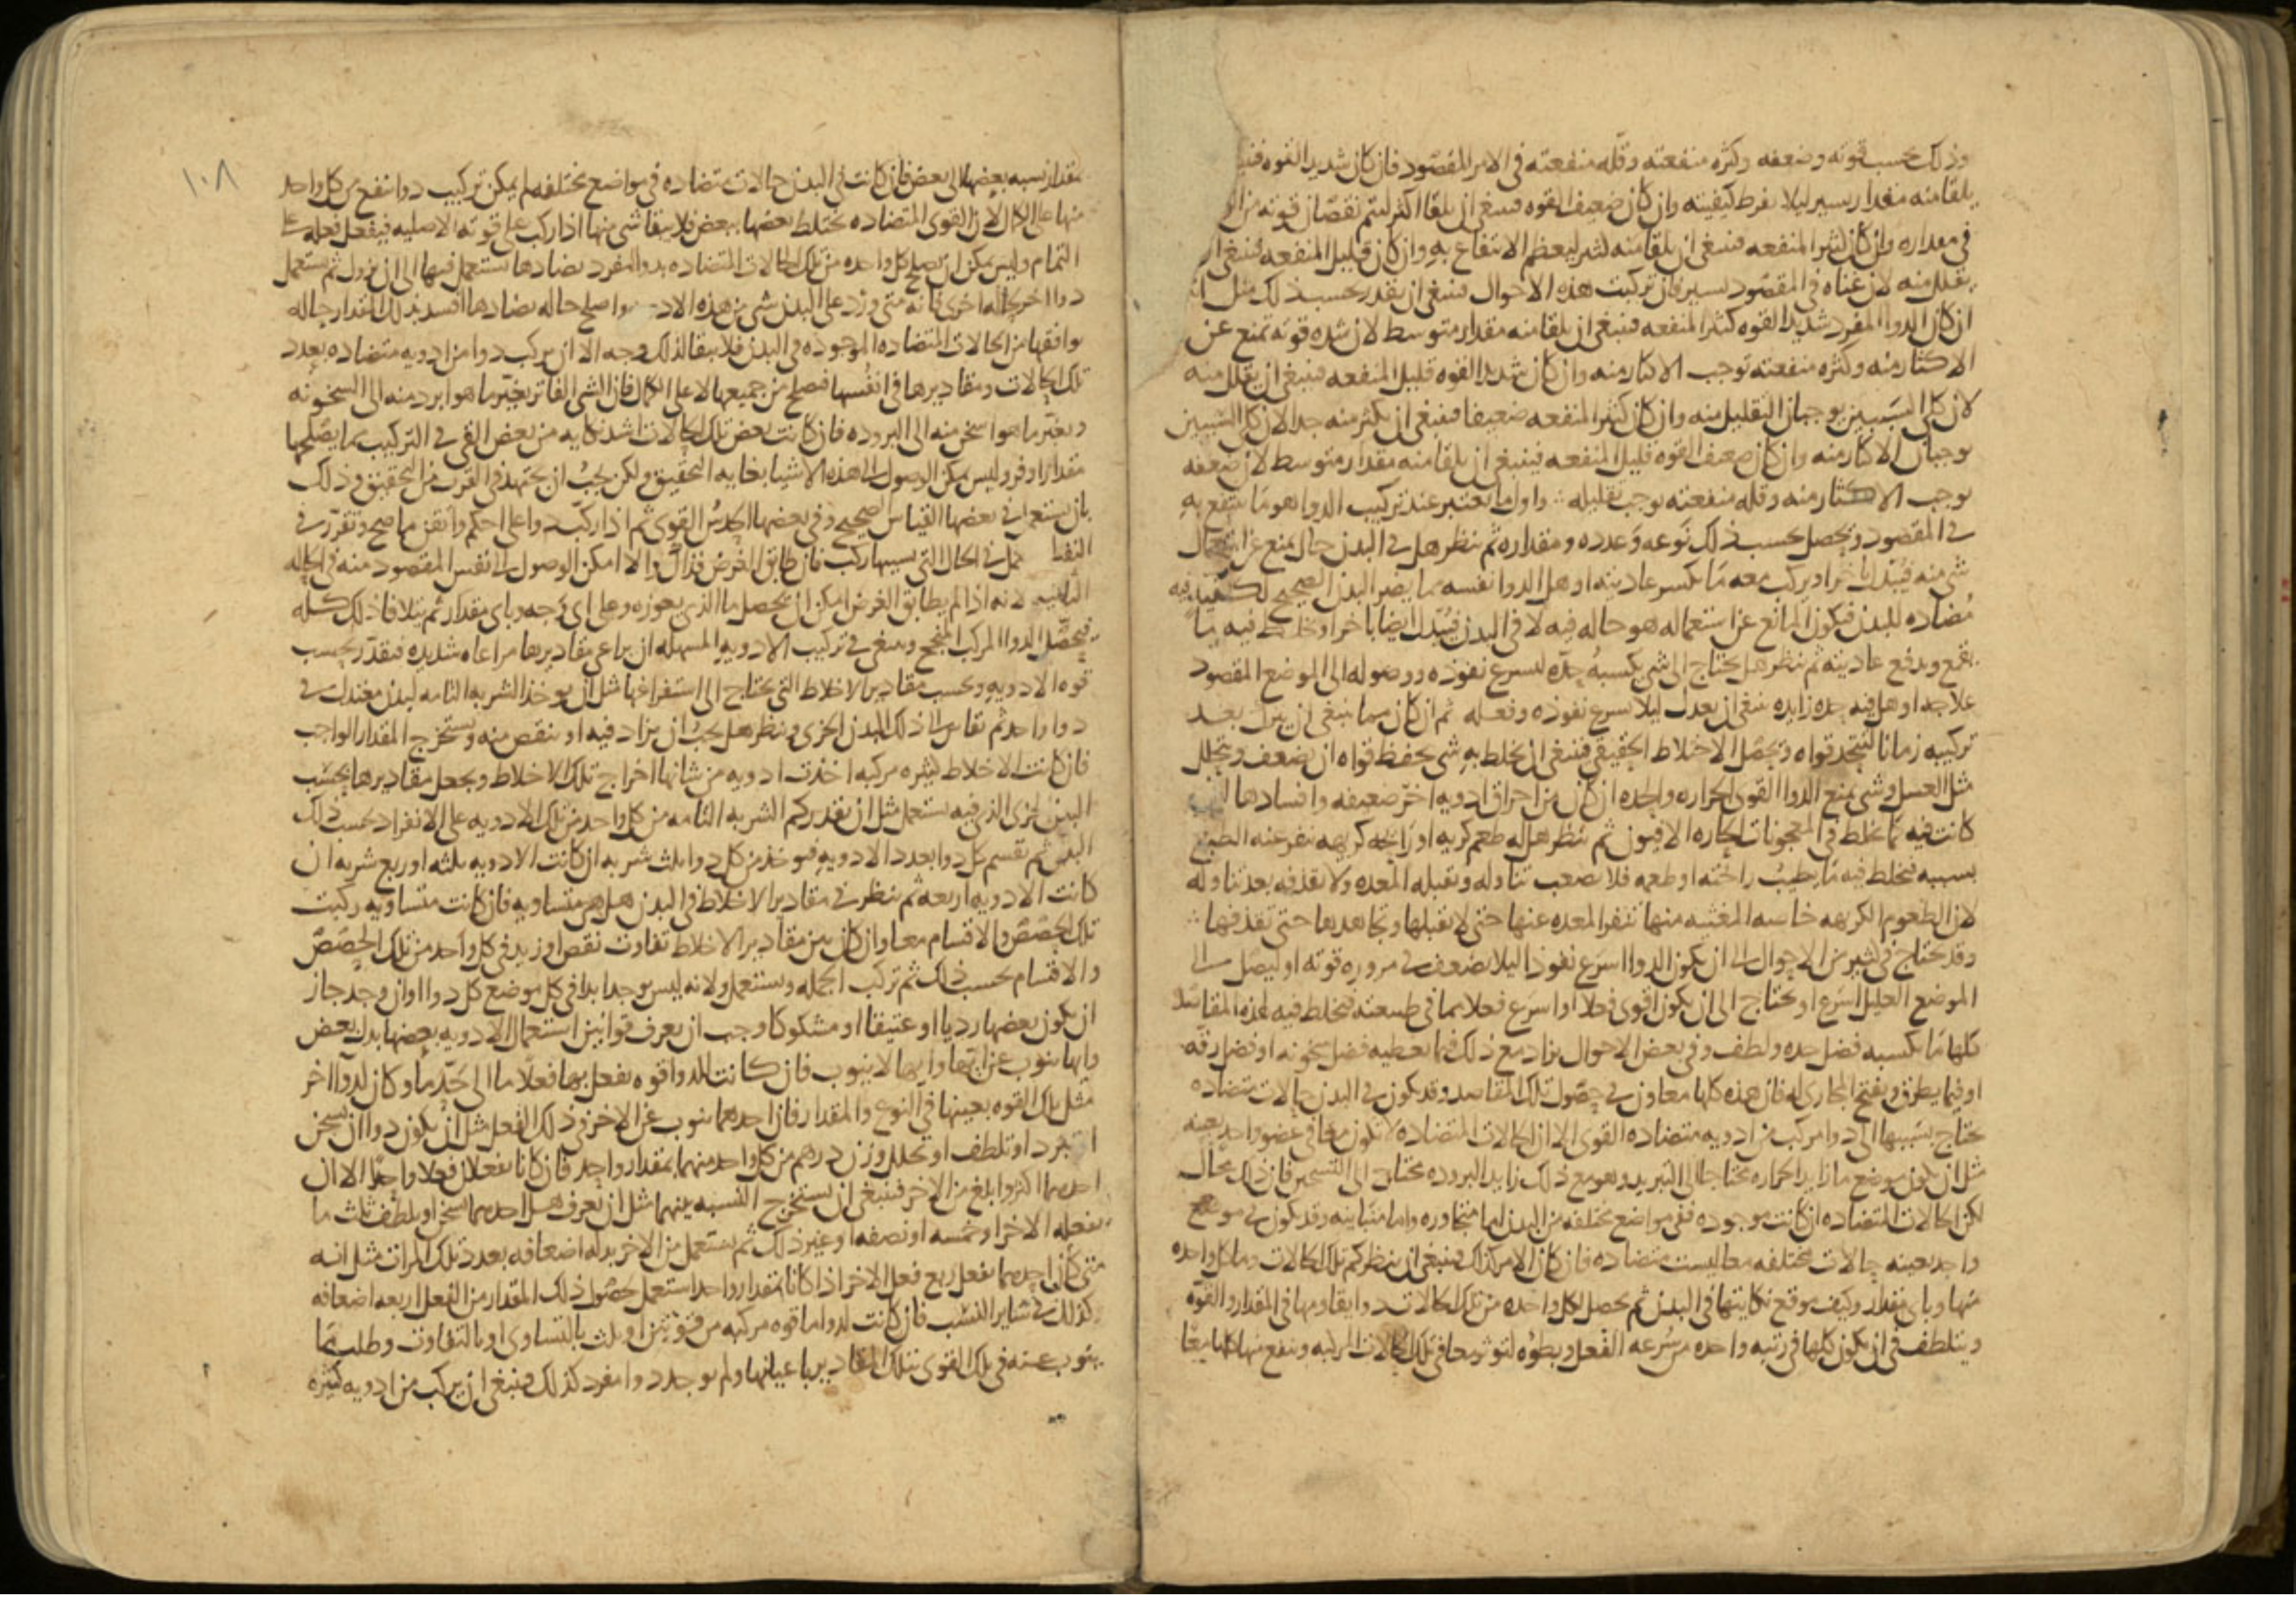 وذلك بحسب قوته وضعفه وكثره منفعته وقله منفعته في الامر المقصود فان كان شديد القوه فينبغي
يلقا منه مقدار يسير ليلا يفرط كيفيته وان كان ضعيف القوه فينبغي ان يلقا اكثر ليتم نقصان قوته
في مقداره وان كان كثير المنفعه فينبغي ان يلقا منه كثير ليعظم الانتفاع به وان كان قليل المنفعه فينبغي ان
يقلل منه لان غناه في المقصود يسير فان تركبت هذه الاحوال فينبغي ان يقدر بحسب ذلك مثل
ان كان الدوا المفرد شديد القوه كثير المنفعه فينبغي ان يلقا منه مقدار متوسط لان شده قوته تمنع عن
الاكثار منه وكثره منفعته توجب الاكثار منه وان كان شديد القوه قليل المنفعه فينبغي ان يقلل منه
لان كلي السببين يوجبان التقليل منه وان كان كثير المنفعه ضعيفا فينبغي ان يكثر منه جدا لان كلي السببين
يوجبان الاكثار منه وان كان ضعيف القوه قليل المنفعه فينبغي ان يلقا منه مقدار متوسط لان ضعفه
يوجب الاكثار منه وقله منفعته توجب تقليله واول ما يعتبر عند تركيب الدوا هو ما ينتفع به
في المقصود ويحصل بحسب ذلك نوعه وعدده ومقداره ثم ينظر هل في البدن حال يمنع عن استعمال
شي منه فيبدل باخر او يركب معه ما يكسر عاديته او هل الدوا نفسه مما يضر البدن الصحيح لكيفيه فيه
مضاده للبدن فيكون المانع عن استعماله هو حاله فيه لا في البدن فيبدل ايضا باخر او يخلط فيه ما
يقمع ويدفع عاديته ثم ينظر هل يحتاج الى شي يكسبه حده ليسرع نفوذه ووصوله الى الموضع المقصود
علاجه او هل فيه حده زايده ينبغي ان يعدل ليلا يسرع نفوذه وفعله ثم ان كان مما ينبغي ان يترك بعد
تركيبه زمانا لتتحد قواه ويحصل الاختلاط الحقيقي فينبغي ان يخلط به شي يحفظ قواه ان يضعف ويتحلل
مثل العسل وشي يمنع الدوا القوي الحراره والحده ان كان من احراق ادويه اخر ضعيفه وافسادها
كانت فيه كما يخلط في المعجونات الحاره الافيون ثم ينظر هل له طعم كريه او رايحه كريهه تنفر عنه الطبع
بسببه فيخلط فيه ما يطيب رايحته او طعمه فلا يصعب تناوله وتقبله المعده ولا تقذفه بعد تناوله
لان الطعوم الكريهه خاصه المغثيه منها تنفر المعده عنها حتى لا تقبلها وتجاهدها حتى تقذفها
وقد يحتاج في كثير من الاحوال الى ان يكون الدوا اسرع نفوذا ليلا يضعف في مروره قوته او ليصل الى
الموضع العليل اسرع او يحتاج الى ان يكون اقوى فعلا او اسرع فعلا مما في طبيعته فيخلط فيه لهذه المقاصد
كلها ما يكسبه فضل حده ولطف وفي بعض الاحوال يزاد مع ذلك فيما يعطيه فضل سخونه او فضل رقه
او فيما يطرق ويفتح المجاري له فان هذه كلها معاون في حصول تلك المقاصد وقد يكون في البدن حالات متضاده
يحتاج بسببها الى دوا مركب من ادويه متضاده القوى الا ان الحالات المتضاده لا تكون معا في عضو واحد بعينه
مثل ان يكون موضع ما زايد الحراره محتاجا الى التبريد وهو مع ذلك زايد البروده محتاج الى التسخين فان ذلك محال
لكن الحالات المتضاده ان كانت موجوده ففي مواضع مختلفه من البدن اما متجاوره واما متباينه وقد يكون في موضع
واحد بعينه حالات مختلفه معا ليست متضاده فان كان الامر كذلك فينبغي ان ينظر كم تلك الحالات وما كل واحده
منها وباي مقدار وكيف موقع نكايتها في البدن ثم يحصل لكل واحده من تلك الحالات دوا يقاومها في المقدار والقوه
ويتلطف في ان يكون كلها في رتبه واحده من سرعه الفعل وبطوه لتوثر معا في تلك الحالات المركبه وينفع منها كلها معا
١٠٨
بمقدار نسبه بعضها الى بعض فان كانت في البدن حالات متضاده في مواضع مختلفه لم يمكن تركيب دوا ينفع من كل واحد
منها على الكمال لان القوى المتضاده يختلط بعضها ببعض فلا يبقا شي منها اذا ركب على قوته الاصليه فيفعل فعله على
التمام وليس يمكن ان يصلح كل واحده من تلك الحالات المتضاده بدوا مفرد يضادها يستعمل فيها الى ان يزول ثم يستعمل
دوا اخر لحاله اخرى فانه متى ورد على البدن شي من هذه الادويه واصلح حاله يضادها افسد بذلك المقدار حاله
يوافقها من الحالات المتضاده الموجوده في البدن فلا يبقا لذلك وجه الا ان يركب دوا من ادويه متضاده بعدد
تلك الحالات ومقاديرها في انفسها فيصلح من جميعها لا على الكمال فان الشي الفاتر يغير ما هو ابرد منه الى السخونه
ويغير ما هو اسخن منه الى البروده فان كانت بعض تلك الحالات اشد نكايه من بعض القي في التركيب مما يصلحها
مقدارا اوفر وليس يمكن الوصول الى هذه الاشيا بغايه التحقيق ولكن يجب ان يجتهد في القرب من التحقيق وذلك
بان يستعمل في بعضها القياس الصحيح وفي بعضها الحدس القوي ثم اذا ركب دوا على احكم واتقن ما صح وتقرر في
في الحال التي بسببها ركب فان طابق الغرض فذاك والا امكن الوصول الى نفس المقصود منه في الحاله
الثانيه لانه اذا لم يطابق الغرض امكن ان يحصل ما الذي يعوزه وعلى اي وجه وباي مقدار ثم يتلافا ذلك كله
فيحصل الدوا المركب المنجح وينبغي في تركيب الادويه المسهله ان يراعى مقاديرها مراعاه شديده فتقدر بحسب
قوه الادويه وبحسب مقادير الاخلاط التي يحتاج الى استفراغها مثل ان يوخذ الشربه التامه لبدن معتدل في
دوا واحد ثم يقاس الى ذلك البدن الجزي وينظر هل يجب ان يزاد فيه او ينقص منه ويستخرج المقدار الواجب
فان كانت الاخلاط كثيره مركبه اخذت ادويه من شانها اخراج تلك الاخلاط ويجعل مقاديرها بحسب
البدن الجزي الذي فيه يستعمل مثل ان يقدر كم الشربه التامه من كل واحد من تلك الادويه على الانفراد بحسب ذلك
البدن ثم يقسم كل دوا بعدد الادويه فيوخذ من كل دوا ثلث شربه ان كانت الادويه ثلثه او ربع شربه ان
كانت الادويه اربعه ثم ينظر في مقادير الاخلاط في البدن هل هي متساويه فان كانت متساويه ركبت
تلك الحصص والاقسام معا وان كان بين مقادير الاخلاط تفاوت نقص او زيد في كل واحد من تلك الحصص
والاقسام بحسب ذلك ثم تركب الجمله وتستعمل ولانه ليس يوجد ابدا في كل موضع كل دوا او ان وجد جاز
ان يكون بعضها رديا او عتيقا او مشكوكا وجب ان يعرف قوانين استعمال الادويه بعضها بدل بعض
وايها ينوب عن ايها وايها لا ينوب فان كانت لدوا قوه يفعل بها فعلا ما الى حد ما وكان لدوا اخر
مثل تلك القوه بعينها في النوع والمقدار فان احدهما ينوب عن الاخر في ذلك الفعل مثل ان يكون دوا ان يسخن
او تبرد او تلطف او تحلل وزن درهم من كل واحد منهما بمقدار واحد فان كانا يفعلان فعلا واحدا الا ان
احدهما اكثر وابلغ من الاخر فينبغي ان يستخرج النسبه بينهما مثل ان يعرف هل احدهما يسخن او يلطف ثلث ما
يفعله الاخر او خمسه او نصفه او غير ذلك ثم يستعمل من الاخر بدله اضعافه بعدد تلك المرات مثل انه
متى كان احدهما يفعل ربع فعل الاخر اذا كانا بمقدار واحد استعمل لحصول ذلك المقدار من الفعل اربعه اضعافه
كذلك في ساير النسب فان كانت لدوا ما قوه مركبه من قوتين او ثلث بالتساوي او بالتفاوت وطلب ما
ينوب عنه في تلك القوى بتلك المقادير باعيانها ولم يوجد دوا مفرد كذلك فينبغي ان يركب من ادويه كثيره